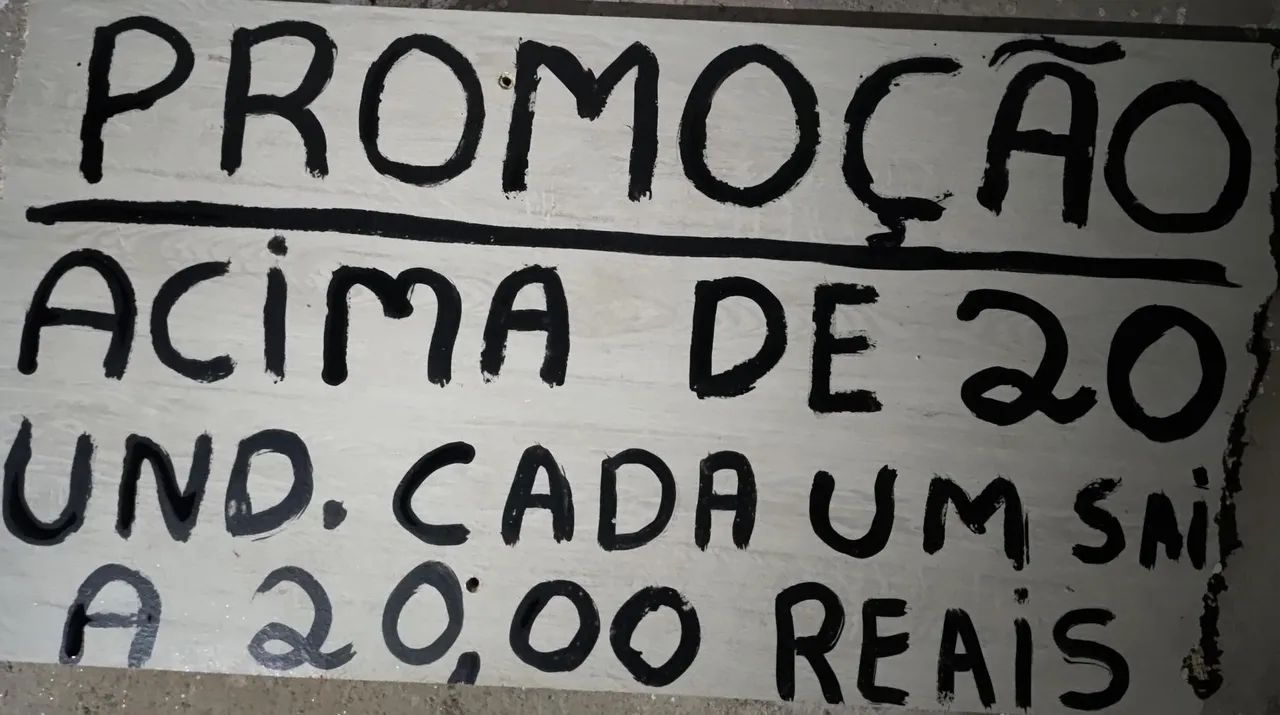 PROMOÇÃO
ACiMA DE 20
UND. CADA UM SAi
A 20,00 REAiS